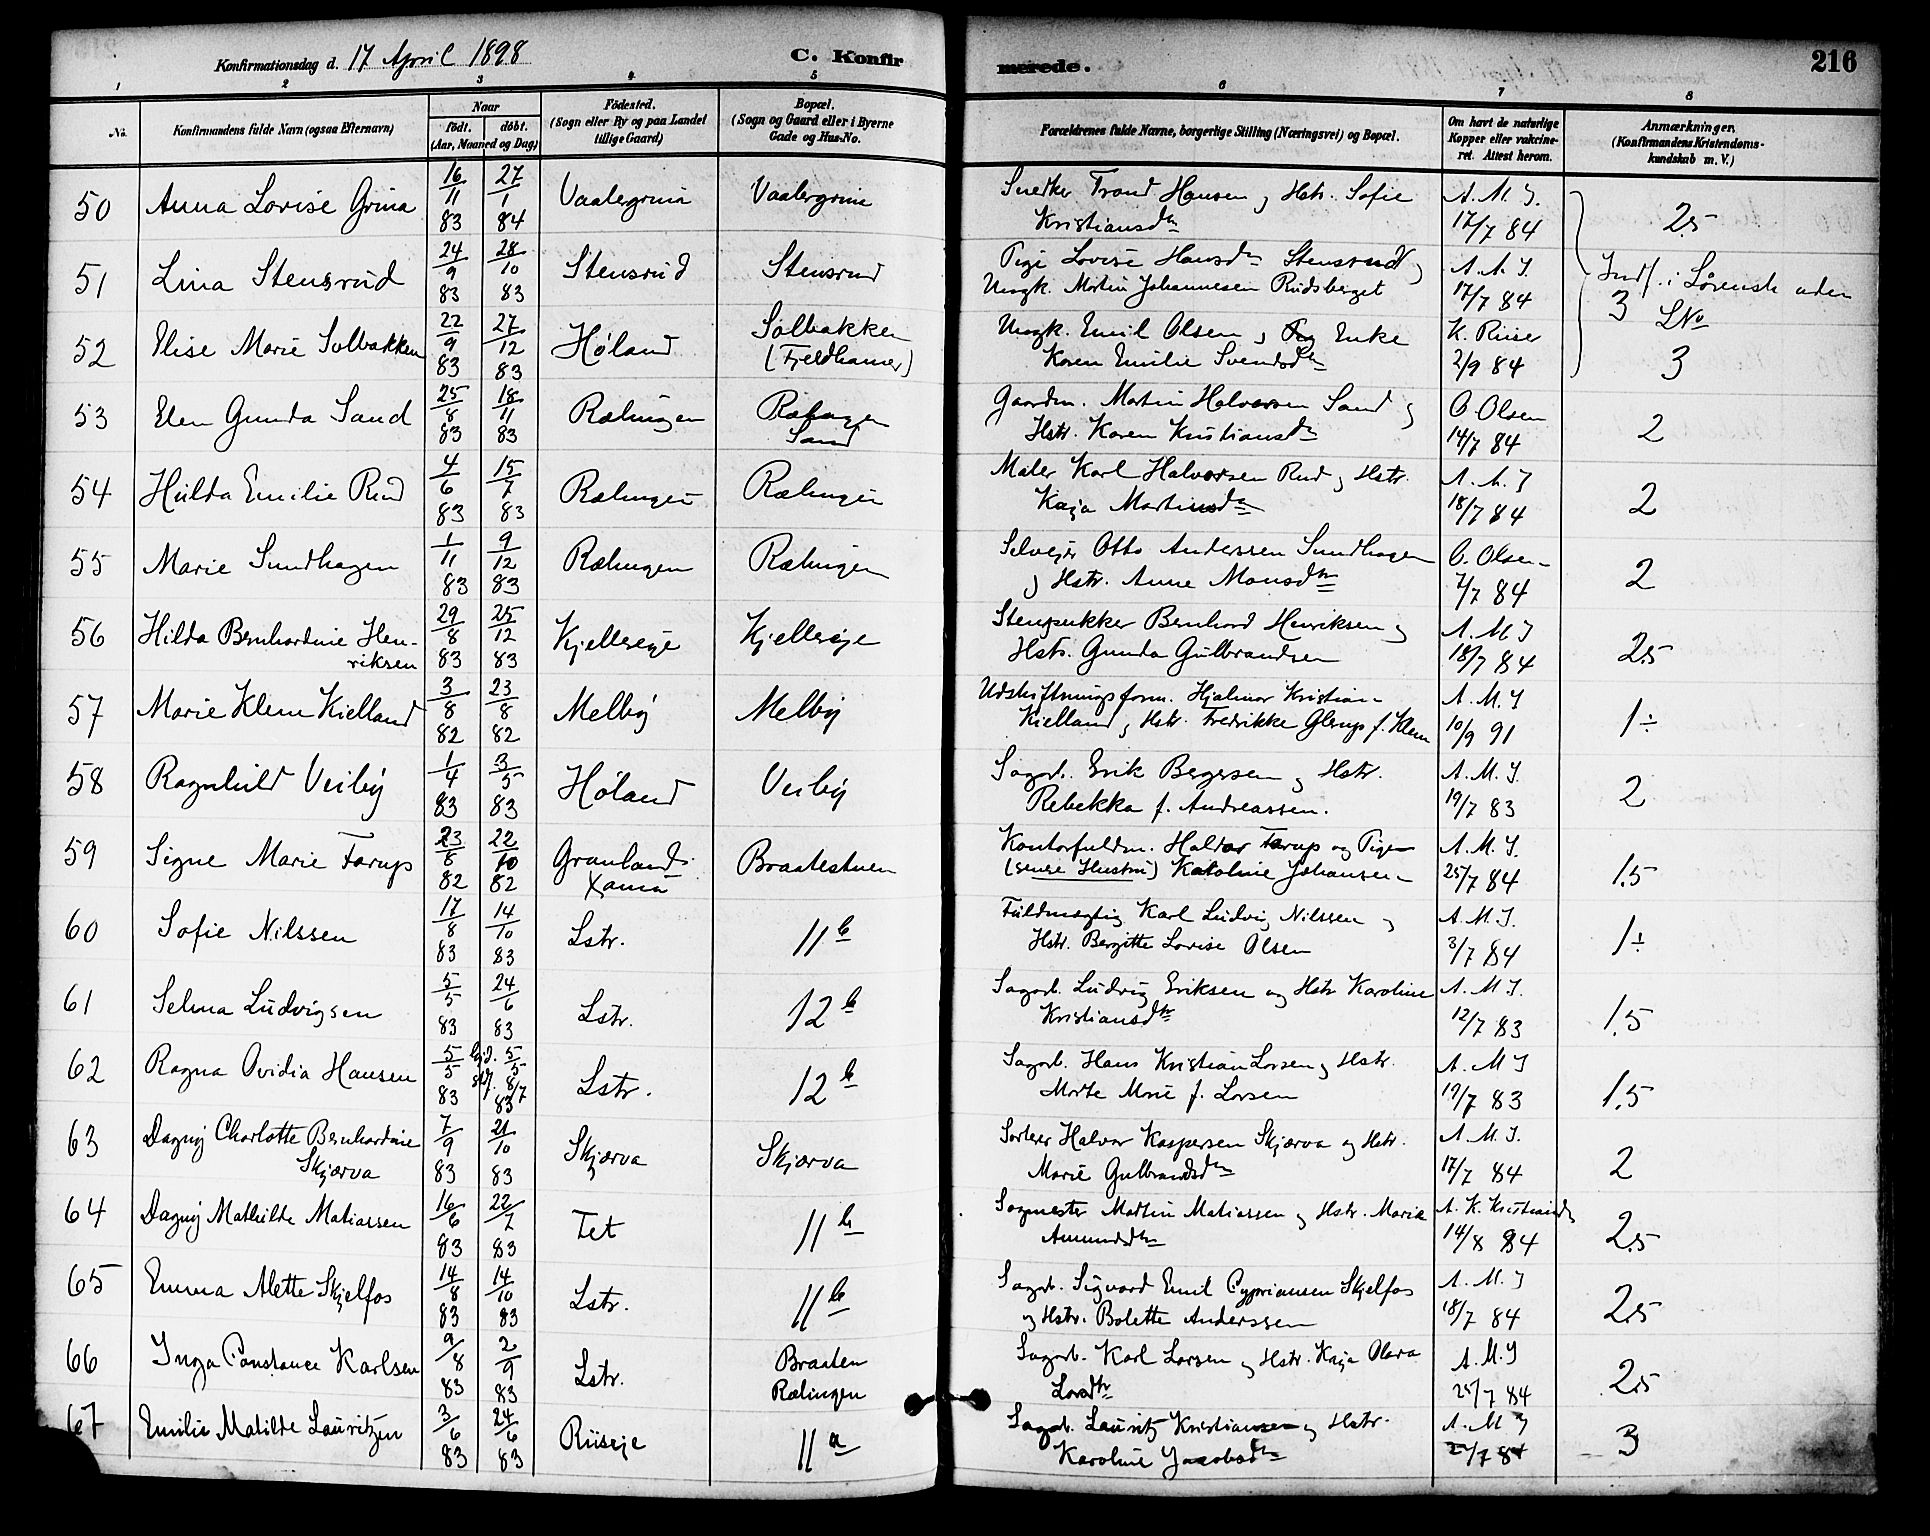 Konfirmationsdag d. 17 April 1898
C. Konfirmerede.
216
1 2 3 4 5 6 7 8
No.
Konfirmandens fulde Navn (ogsaa Efternavn)
Naar
födt. döbt.
(Aar, Maaned og Dag)
Födested.
(Sogn eller By og paa Landet
tillige Gaard)
Bopæl.
(Sogn og Gaard eller i Byerne
Gade og Hus-No.
Forældrenes fulde Navne, borgerlige Stilling (Næringsvei) og Bopæl.
Om havt de naturlige
Kopper eller vakcine-
ret. Attest herom.
Anmærkninger.
(Konfirmandens Kristendoms-
kundskab m. V.)
50 Anna Lovise Grina 16/11 83 27/1 84 Vaalergrina Vaalergrina Snedker Trond Hansen og Hstr. Sofie A. M. J. 2.5
Kristiansdtr 17/7 84
51 Lina Stensrud 24/9 83 28/10 83 Stensrud Stensrud Pige Lovise Hansdtr Stensrud og A. M. J. Indf. i Lørensk. uden
Ungk. Martin Johannesen Rudsberget 17/7 84 3 LNo
52 Elise Marie Solbakken 22/9 83 27/12 83 Høland Solbakken Ungk. Emil Olsen og Enke K. Riise
(Fjeldhamer) Karen Emilie Svendsdtr 2/9 84 3
53 Elen Gunda Sand 25/8 83 18/11 83 Rælingen Rælingen Gaardm. Martin Halvorsen Sand og O. Olsen 2
Sand Hstr. Karen Kristiansdtr 14/7 84
54 Hulda Emilie Rud 4/6 83 15/7 83 Rælingen Rælingen Maler Karl Halvorsen Rud og Hstr. A. M. J 2
Kaja Martinsdtr 18/7 84
55 Marie Sundhagen 1/11 83 9/12 83 Rælingen Rælingen Selvejer Otto Anderssen Sundhagen O. Olsen 2
og Hstr. Anne Monsdtr 7/7 84
56 Hilda Bernhardine Hen- 29/8 83 25/12 83 Kjellereje Kjellereje Stenpukker Bernhard Henriksen og A. M. J 2.5
riksen Hstr. Gunda Gulbrandsen 18/7 84
57 Marie Klem Kielland 3/8 82 23/8 82 Melby Melby Udskiftningsform. Hjalmar Kristian A. M. J 1÷
Kielland og Hstr. Fredrikke Glerup f. Klem 10/9 91
58 Ragnhild Veiby 1/4 83 3/5 83 Høland Veiby Sagarb. Erik Bergersen og Hstr. A. M. J. 2
Rebekka f. Andreassen. 19/7 83
59 Signe Marie Farup 23/8 82 22/10 82 Grønlands Braatestuen Kontorfuldm. Haldor Farup og Pige A. M. J. 1.5
Xania (senere Hustru) Katoline Johansen 25/7 84
60 Sofie Nilssen 17/8 83 14/10 83 Lstr. 11 b Fuldmægtig Karl Ludvig Nilssen og A. M. J. 1÷
Hstr. Bergitte Lovise Olsen 3/7 84
61 Selma Ludvigsen 5/5 83 24/6 83 Lstr. 12 b Sagarb. Ludvig Eriksen og Hstr Karoline A. M J. 1.5
Kristiansdtr 12/7 83
62 Ragna Ovidia Hansen 5/5 83 hjd. 5/5 stf. 8/7 83 Lstr. 12 b Sagarb. Hans Kristian Larsen og Hstr. A. M J 1.5
Marte Marie f. Larsen 19/7 83
63 Dagny Charlotte Bernhardine 7/9 83 21/10 83 Skjærva Skjærva Sorterer Halvor Kaspersen Skjærva og Hstr. A. M. J. 2
Skjærva Marie Gulbrandsdtr 17/7 84
64 Dagny Mathilde Matiassen 16/6 83 22/7 83 Fet 11 b Sagmester Martin Matiassen og Hstr. Marie A. K. Kristiands 2.5
Amundsdtr 14/8 84
65 Emma Alette Skjelfos 14/8 83 14/10 83 Lstr. 11 b Sagarb. Sigvard Emil Cypriansen Skjelfos A. M. J 2.5
og Hstr. Bolette Anderssen 18/7 84
66 Inga Constance Karlsen 9/8 83 2/9 83 Lstr. Braaten Sagarb. Karl Larsen og Hstr. Kaja Olava A. M. J 2.5
Rælingen Larsdtr 25/7 84
67 Emilie Matilde Lauritzen 3/6 83 24/6 83 Riiseje 11 a Sagarb. Lauritz Kristiansen og Hstr. A. M J 3
Karoline Jacobsdtr /7 84